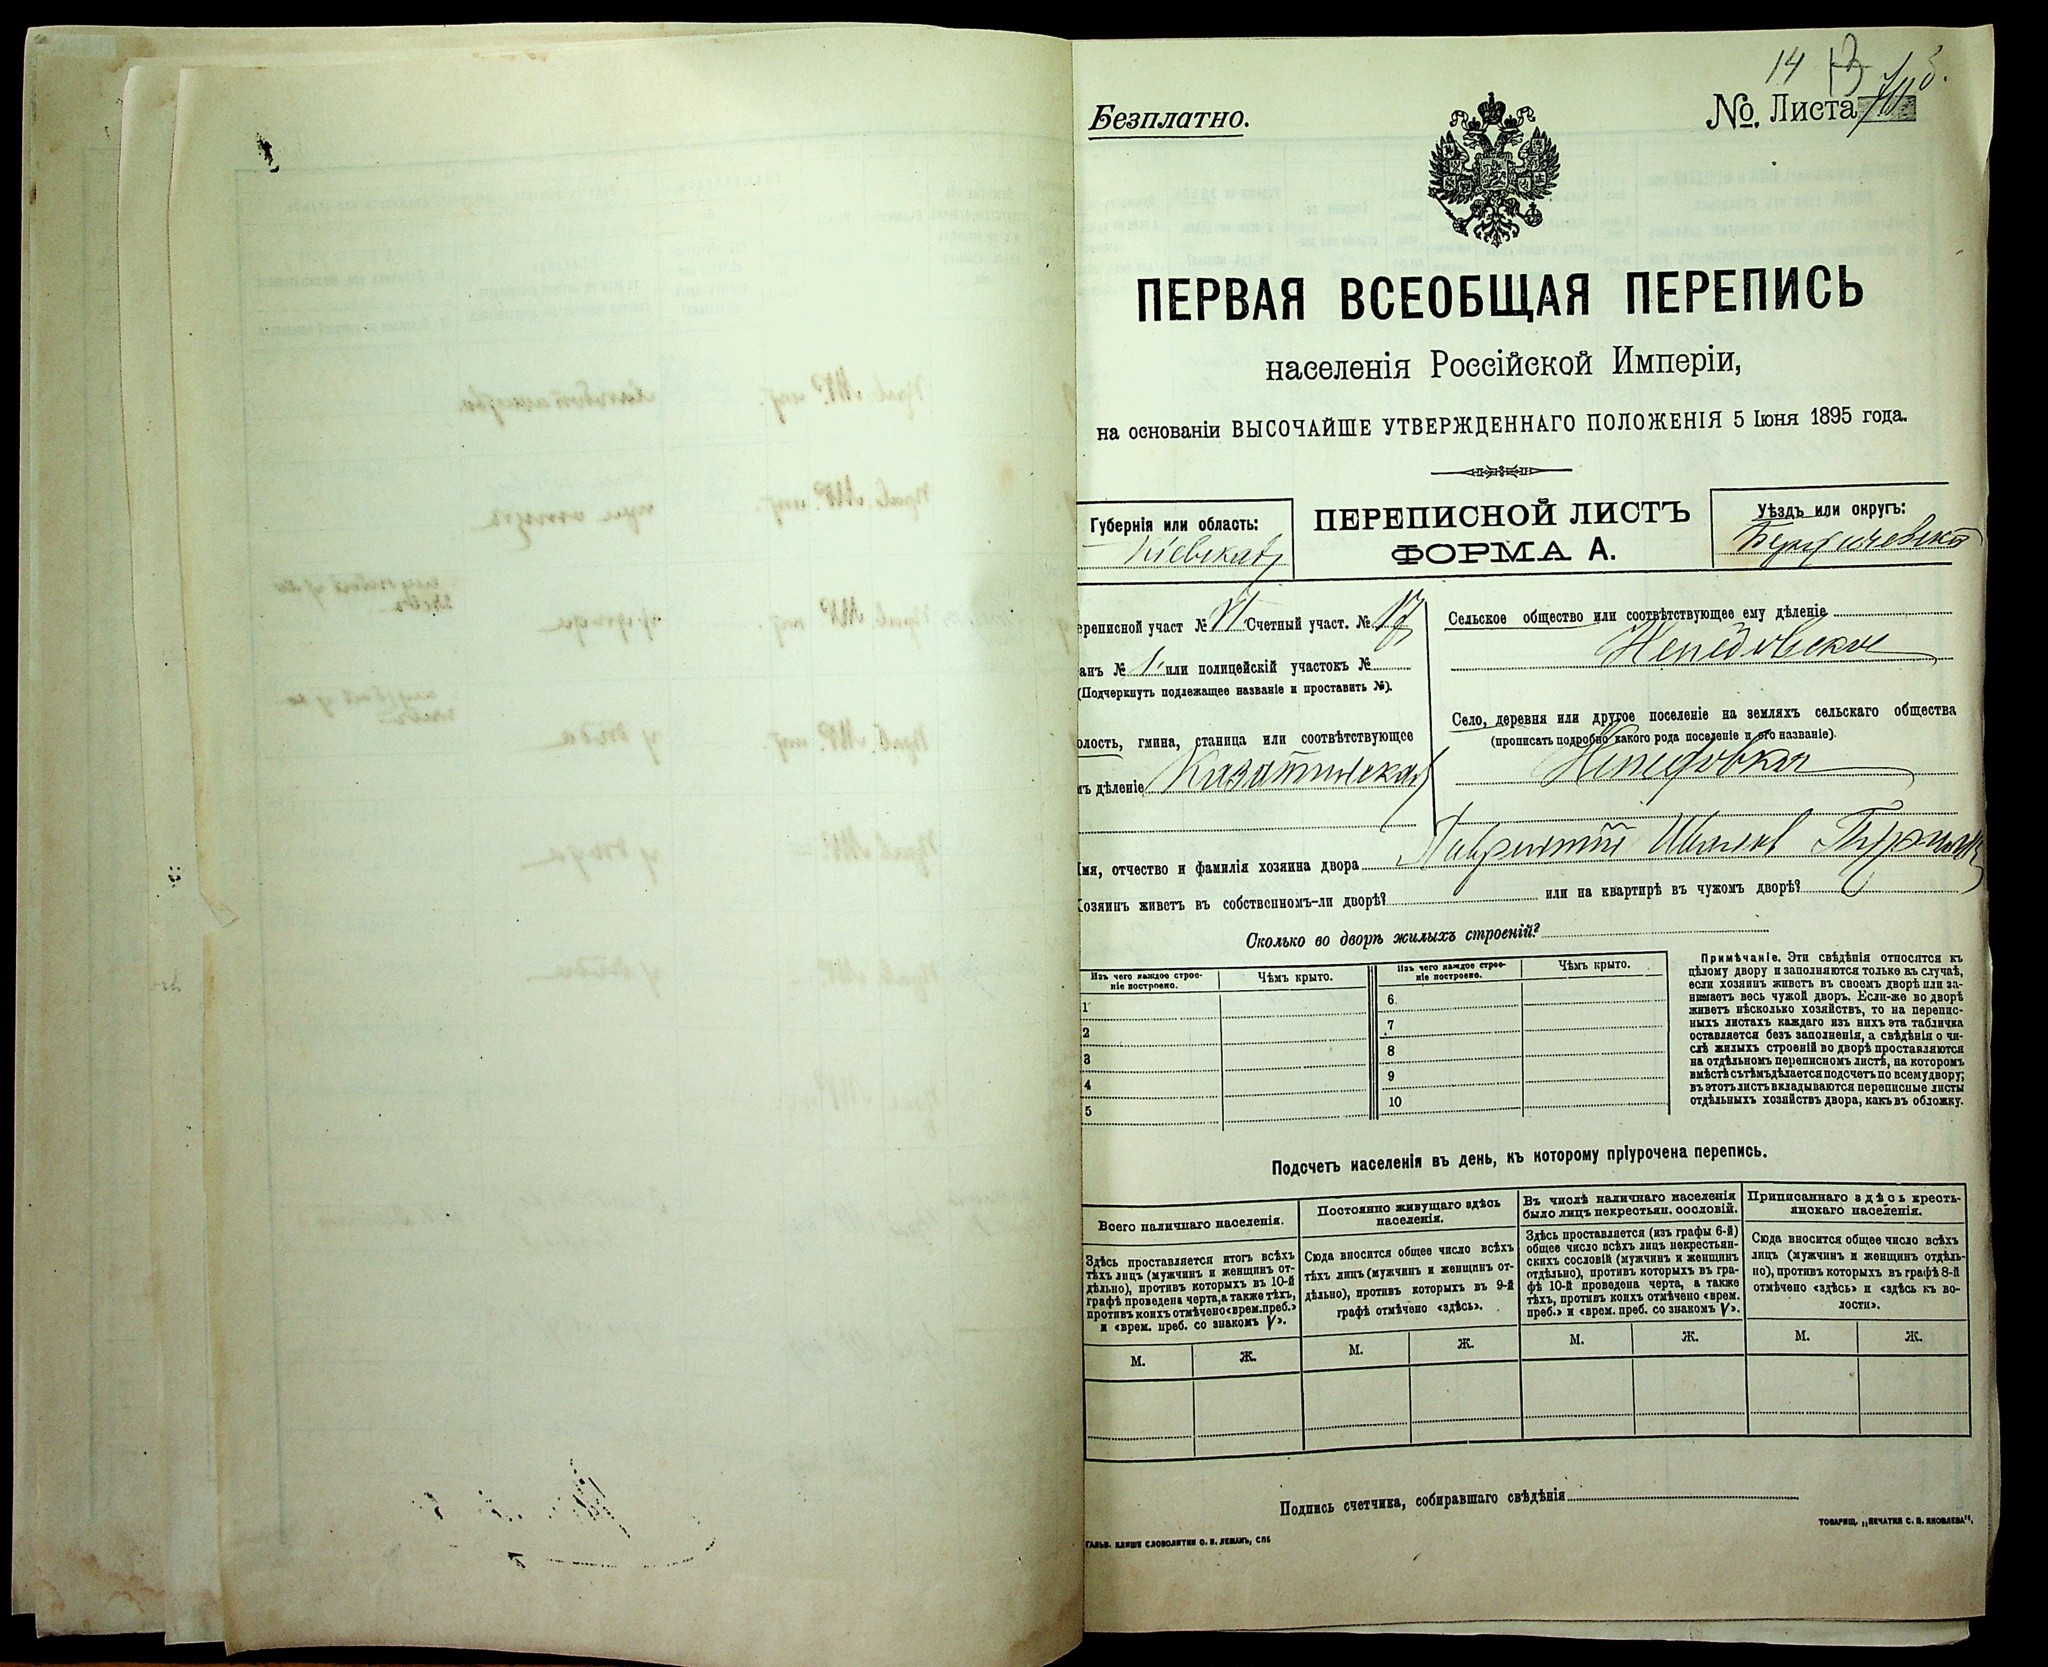 14
Безплатно.
№. Листа
ПЕРВАЯ ВСЕОБЩАЯ ПЕРЕПИСЬ
населенія Россійской Имперіи,
на основаніи ВЫСОЧАЙШЕ УТВЕРЖДЕННАГО ПОЛОЖЕНІЯ 5 Іюня 1895 года.
Губернія или область:
Кіевская
ПЕРЕПИСНОЙ ЛИСТЪ
ФОРМА А.
Уѣздъ или округъ:
Бердичевскій
ереписной участ № VI Счетный участ. № 17
анъ № 1. или полицейскій участокъ №
(Подчеркнуть подлежащее названіе и проставить №).
олость, гмина, станица или соотвѣтствующее
мъ дѣленіе Казатинская
Сельское общество или соотвѣтствующее ему дѣленіе
Непедовское
Село, деревня или другое поселеніе на земляхъ сельскаго общества
(прописать подробно какого рода поселеніе и его названіе).
Непедовка
Имя, отчество и фамилія хозяина двора Лаврентій Иванов
Хозяинъ живетъ въ собственномъ-ли дворѣ? или на квартирѣ въ чужомъ дворѣ?
Сколько во дворѣ жилыхъ строеній?
Изъ чего каждое строе-
ніе построено.
Чѣмъ крыто.
1
2
3
4
5
Изъ чего каждое строе-
ніе построено.
Чѣмъ крыто.
6
7
8
9
10
Примѣчаніе. Эти свѣдѣнія относятся къ
цѣлому двору и заполняются только въ случаѣ,
если хозяинъ живетъ въ своемъ дворѣ или за-
нимаетъ весь чужой дворъ. Если-же во дворѣ
живетъ нѣсколько хозяйствъ, то на перепис-
ныхъ листахъ каждаго изъ нихъ эта табличка
оставляется безъ заполненія, а свѣдѣнія о чи-
слѣ жилыхъ строеній во дворѣ проставляются
на отдѣльномъ переписномъ листѣ, на которомъ
вмѣстѣ съ тѣмъ дѣлается подсчетъ по всему двору;
въ этотъ листъ вкладываются переписные листы
отдѣльныхъ хозяйствъ двора, какъ въ обложку.
Подсчетъ населенія въ день, къ которому пріурочена перепись.
Всего наличнаго населенія.
Здѣсь проставляется итогъ всѣхъ
тѣхъ лицъ (мужчинъ и женщинъ от-
дѣльно), противъ которыхъ въ 10-й
графѣ проведена черта, а также тѣхъ,
противъ коихъ отмѣчено «врем. преб.»
и «врем. преб. со знакомъ V».
М. Ж.
Постоянно живущаго здѣсь
населенія.
Сюда вносится общее число всѣхъ
тѣхъ лицъ (мужчинъ и женщинъ от-
дѣльно), противъ которыхъ въ 9-й
графѣ отмѣчено «здѣсь».
М. Ж.
Въ числѣ наличнаго населенія
было лицъ некрестьян. сословій.
Здѣсь проставляется (изъ графы 6-й)
общее число всѣхъ лицъ некрестьян-
скихъ сословій (мужчинъ и женщинъ
отдѣльно), противъ которыхъ въ гра-
фѣ 10-й проведена черта, а также
тѣхъ, противъ коихъ отмѣчено «врем.
преб.» и «врем. преб. со знакомъ V».
М. Ж.
Приписаннаго здѣсь кресть-
янскаго населенія.
Сюда вносится общее число всѣхъ
лицъ (мужчинъ и женщинъ отдѣль-
но), противъ которыхъ въ графѣ 8-й
отмѣчено «здѣсь» и «здѣсь къ во-
лости».
М. Ж.
Подпись счетчика, собиравшаго свѣдѣнія
ГАЛЬВ. КЛИШЕ СЛОВОЛИТНИ О. И. ЛЕМАНЪ, СПБ
ТОВАРИЩ. „ПЕЧАТНЯ С. П. ЯКОВЛЕВА“.